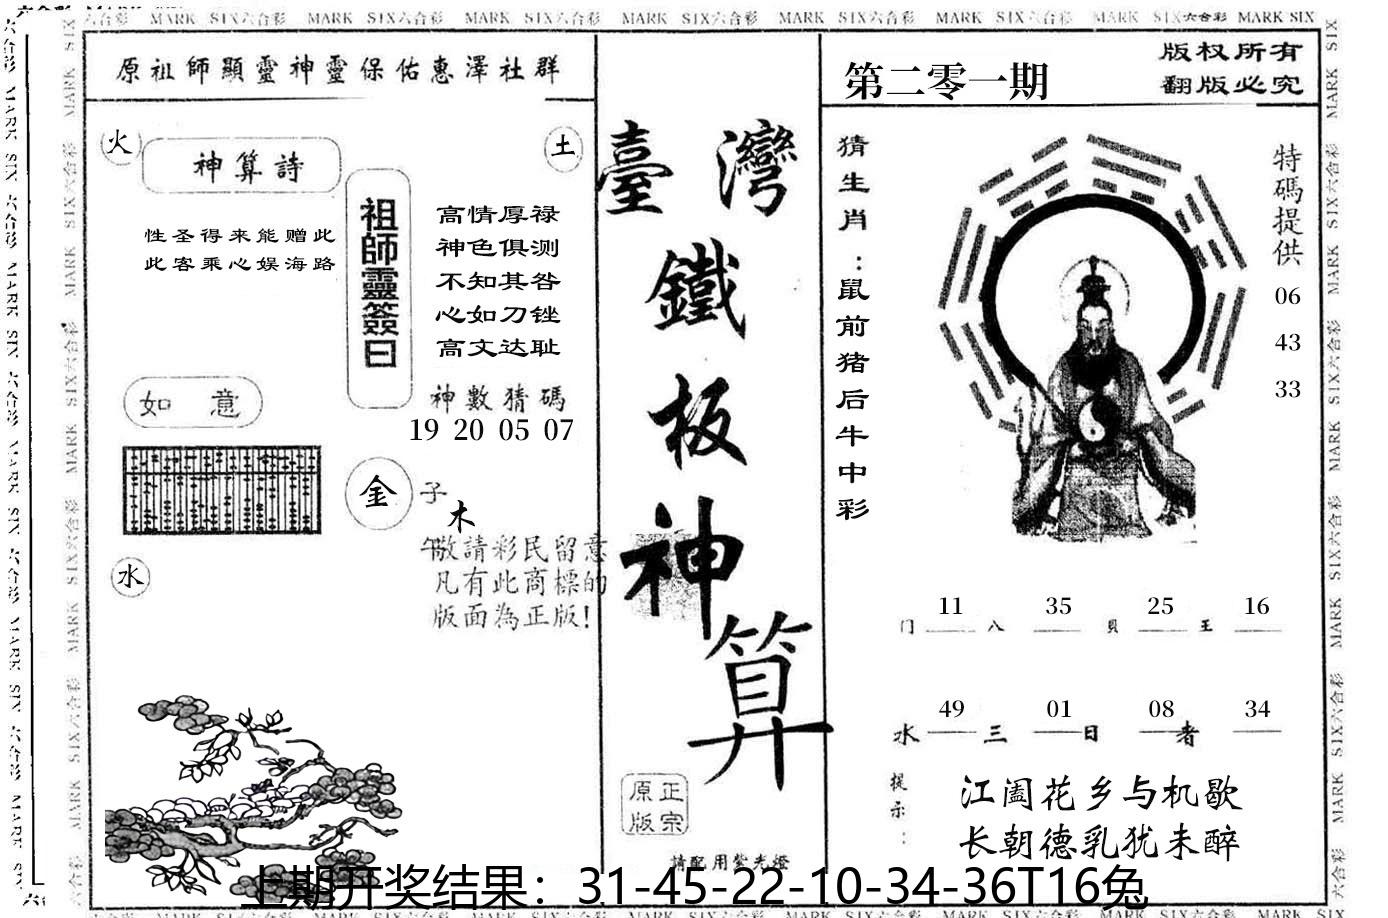 MARK SIX六合彩 MARK SIX六合彩 MARK SIX六合彩 MARK SIX六合彩 MARK SIX六合彩 MARK SIX六合彩 MARK SIX六合彩 MARK SIX
原祖師顯靈神靈保佑惠澤社群
火
神算詩
土
性圣得来能赠此
此客乘心娱海路
祖師靈簽曰
高情厚禄
神色俱测
不知其咎
心如刀锉
高文达耻
神數猜碼
19 20 05 07
如 意
金
子
木
午
水
敬請彩民留意
凡有此商標的
版面為正版!
臺灣
鐵
板
神
算
原正
版宗
請配用紫光燈
第二零一期
版权所有
翻版必究
猜生肖:鼠前猪后牛中彩
特碼提供
06
43
33
11 35 25 16
门 八 貝 王
49 01 08 34
水 三 日 者
提示:
江阖花乡与机歇
长朝德乳犹未醉
上期开奖结果：31-45-22-10-34-36T16兔